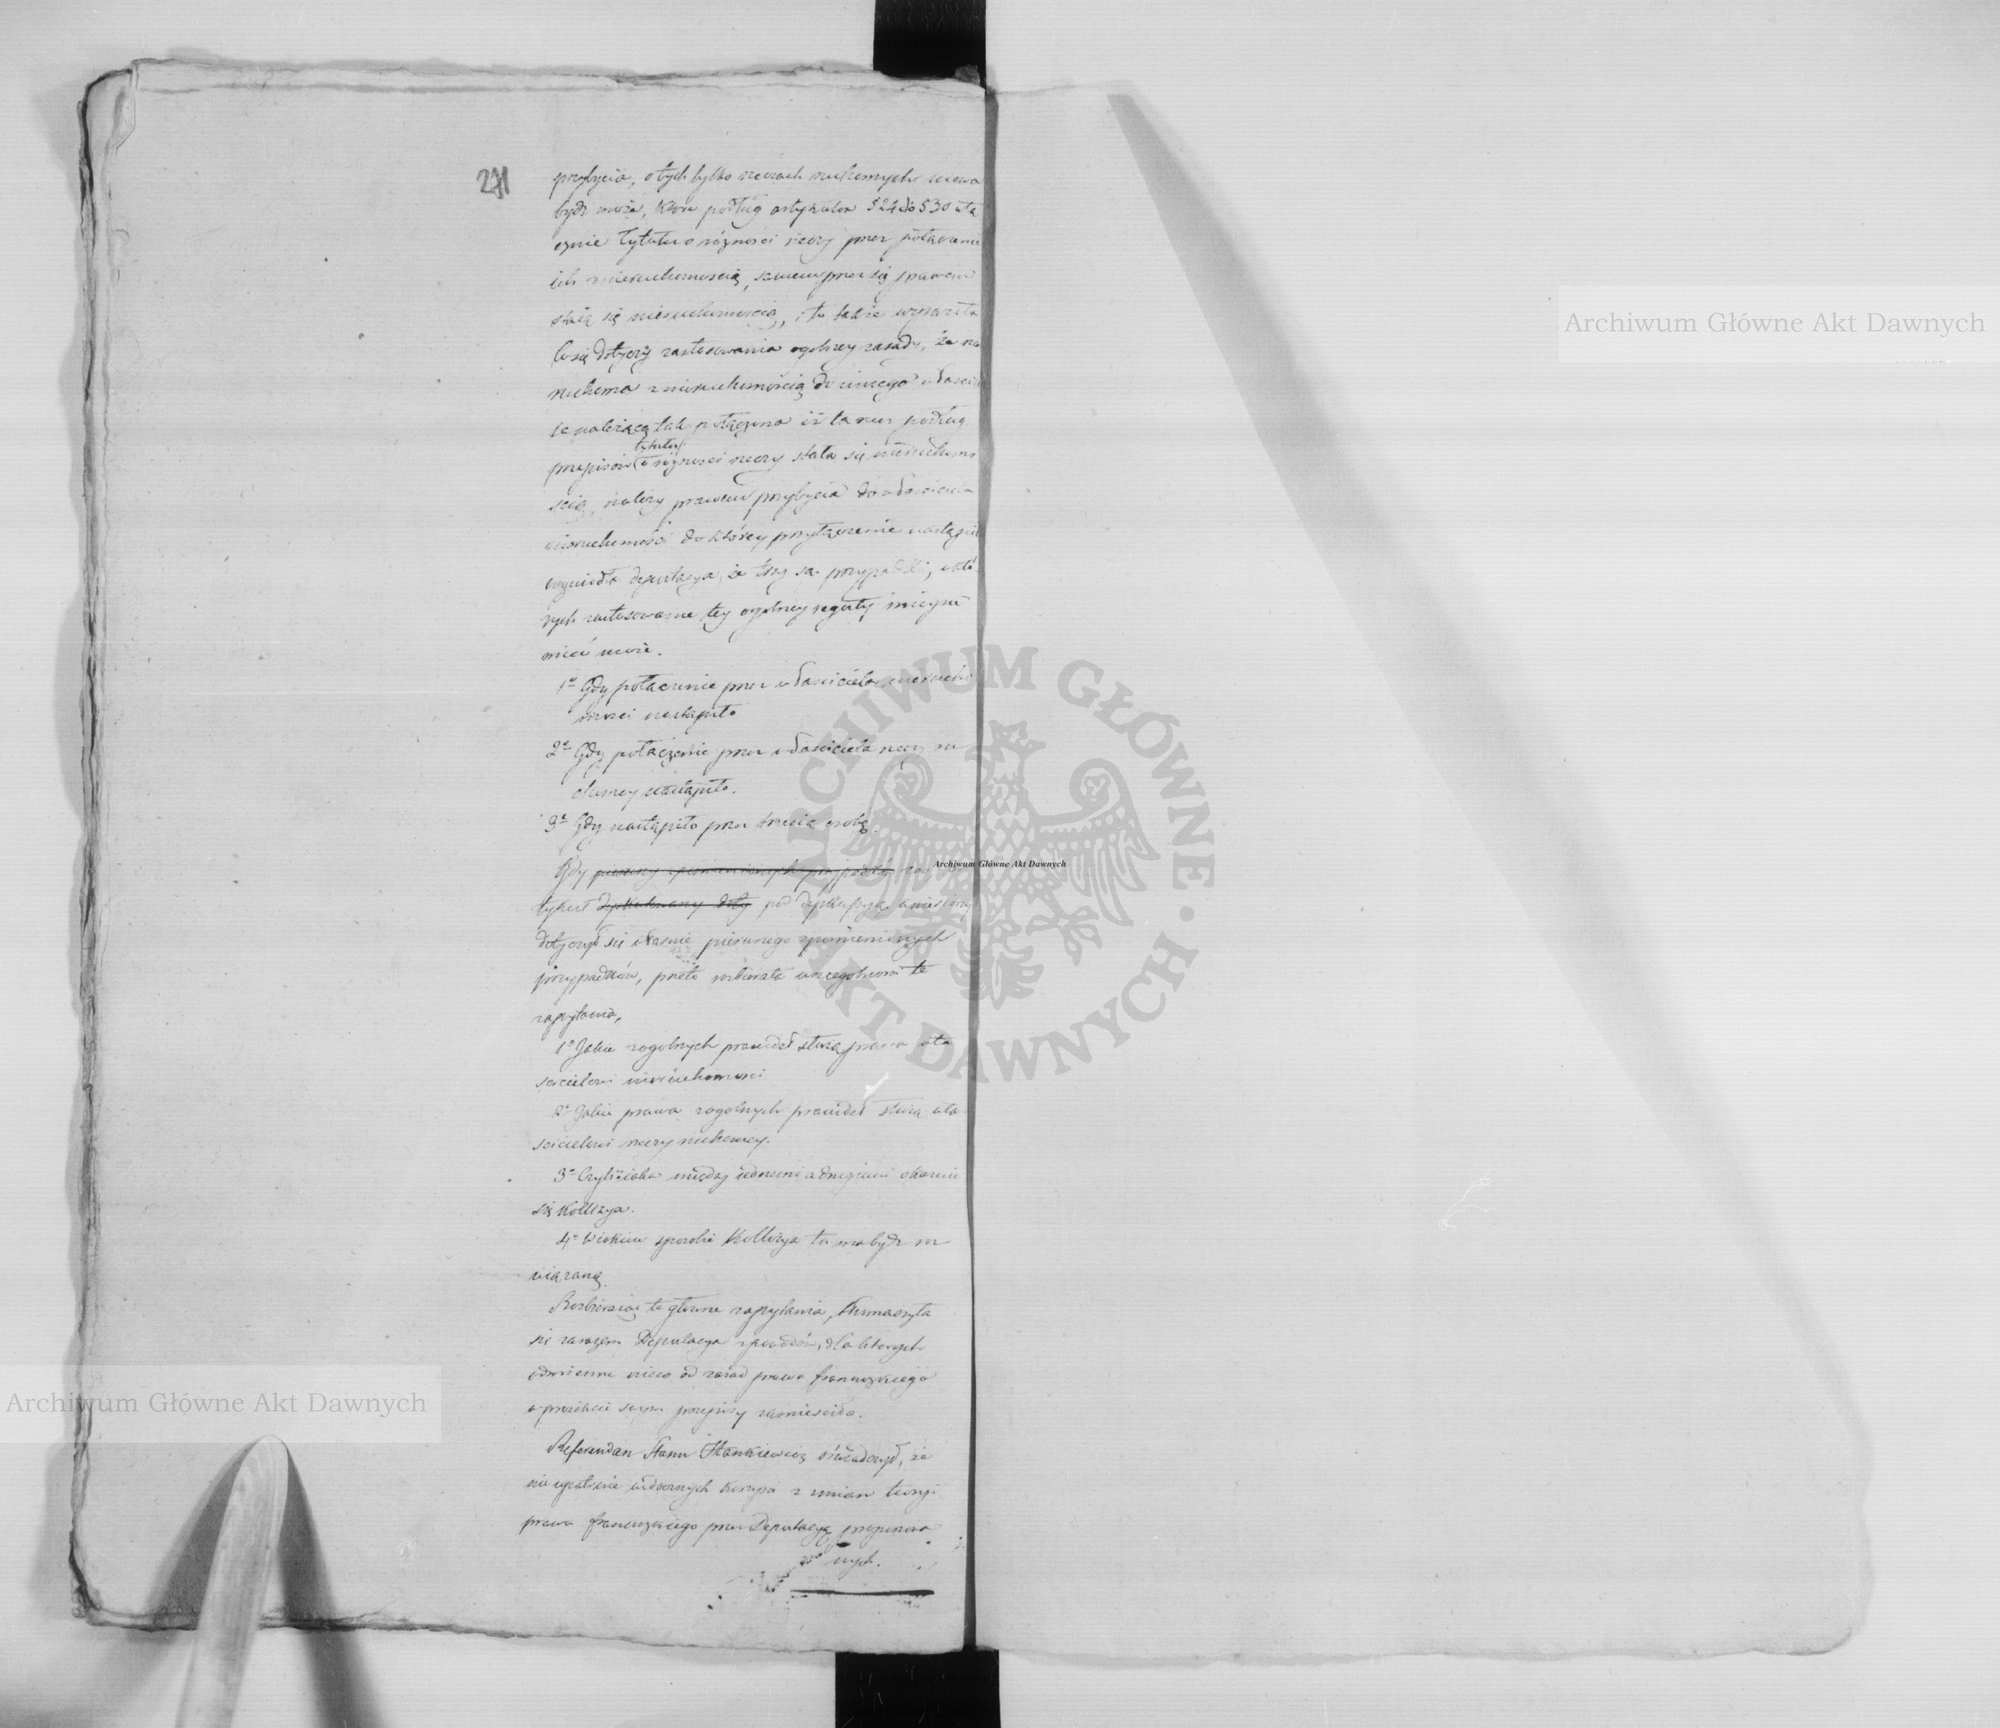 241
przybycia, o tych tylko rzeczach ruchomych mowa
bydź może, które podług artykułów 524 do 530 włą
cznie tytułu o różności rzeczy przez połączenie
ich z nieruchomością, samem przez się prawem
stają się nieruchomością, i tu także wyszcza
Co się dotyczy zastosowania ogólney zasady, że rzecz
ruchoma z nieruchomością do innego właścicie
la należącą tak połączona iż ta rzecz podług
tytułu
przepisów o różności rzeczy stała się nieruchomo
ścią, należy prawem przybycia do właściciela
nieruchomości do którey przyłączenie nastąpiło
wywiodła deputacya, że trzy są przypadki, w któ
rych zastosowanie tey ogólney reguły mieysce
mieć może.
1e Gdy połączenie przez właściciela nierucho
mości nastąpiło
2e Gdy połączenie przez właściciela rzeczy ru
chomey nastąpiło.
3e Gdy nastąpiło przez trzecią osobę.
Gdy pierwszy z pomienionych przypadków
tykuł pod dyskussyą wniesiony
dotyczył się właśnie pierwszego z pomienionych
przypadków, przeto rozbierała w szczególności te
zapytania,
1e Jakie z ogólnych prawideł służą prawa wła
ścicielowi nieruchomości
2e Jakie prawa z ogólnych prawideł służą wła
ścicielowi rzeczy ruchomey.
3e Czyli i jaka między jednemi a drugiemi okazuie
się Kollizya.
4e W iakim sposobie Kollizya ta ma bydź roz
wiązaną.
Rozbieraiąc te główne zapytania, tłumaczyła
się zarazem Deputacya z powodów, dla których
odmienne nieco od zasad prawa francuzkiego
w projekcie swym przepisy zamieściła.
Referendarz Stanu Hankiewicz oświadczył, że
nie upatruie widocznych korzyści z zmian teoryi
prawa francuzkiego przez Deputacyą proponowa
nych.
Archiwum Główne Akt Dawnych
Archiwum Główne Akt Dawnych
Archiwum Główne Akt Dawnych
ARCHIWUM GŁÓWNE • AKT DAWNYCH •